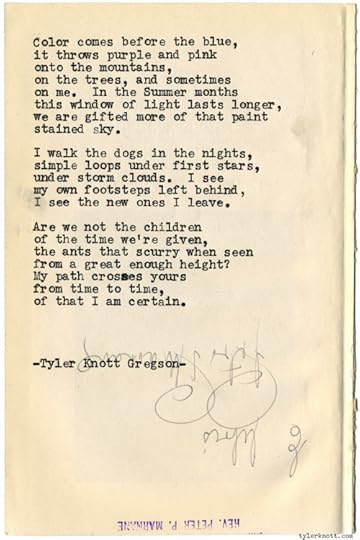 Color comes before the blue,
it throws purple and pink
onto the mountains,
on the trees, and sometimes
on me.  In the Summer months
this window of light lasts longer,
we are gifted more of that paint
stained sky.

I walk the dogs in the nights,
simple loops under first stars,
under storm clouds.  I see
my own footsteps left behind,
I see the new ones I leave.

Are we not the children
of the time we're given,
the ants that scurry when seen
from a great enough height?
My path crosses yours
from time to time,
of that I am certain.

-Tyler Knott Gregson-
REV. PETER P. MARNANE
tylerknott.com